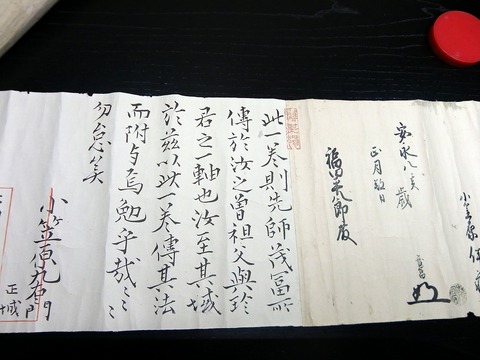 小笠原
安永八亥歳
正月日
八郎殿
此一巻則先師茂冨所
傳於汝之曽祖父與珍
君之一軸也汝至其域
於茲以此一巻傳其法
而附与焉勉乎哉〻〻
勿怠矣
小笠原九右衛門
正域